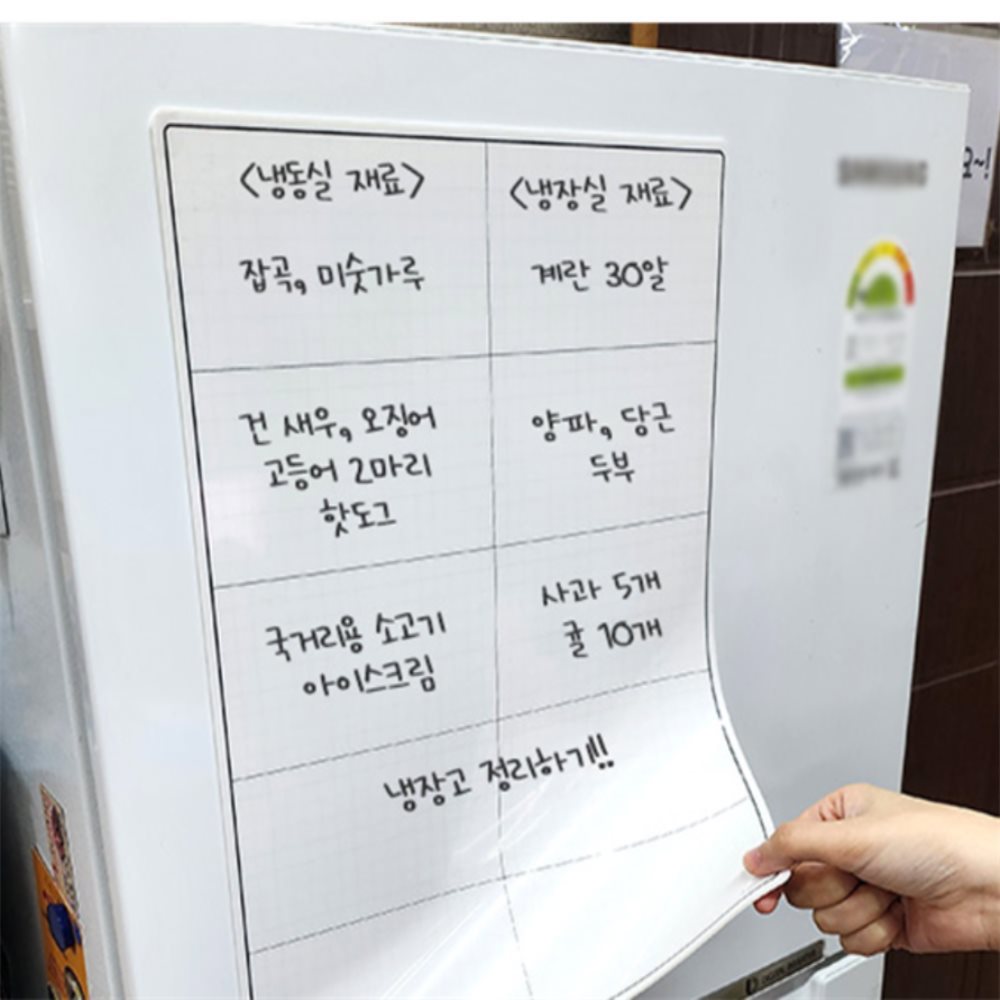 <냉동실 재료>
잡곡, 미숫가루
건 새우, 오징어
고등어 2마리
핫도그
국거리용 소고기
아이스크림
<냉장실 재료>
계란 30알
양파, 당근
두부
사과 5개
귤 10개
냉장고 정리하기!!
요~!